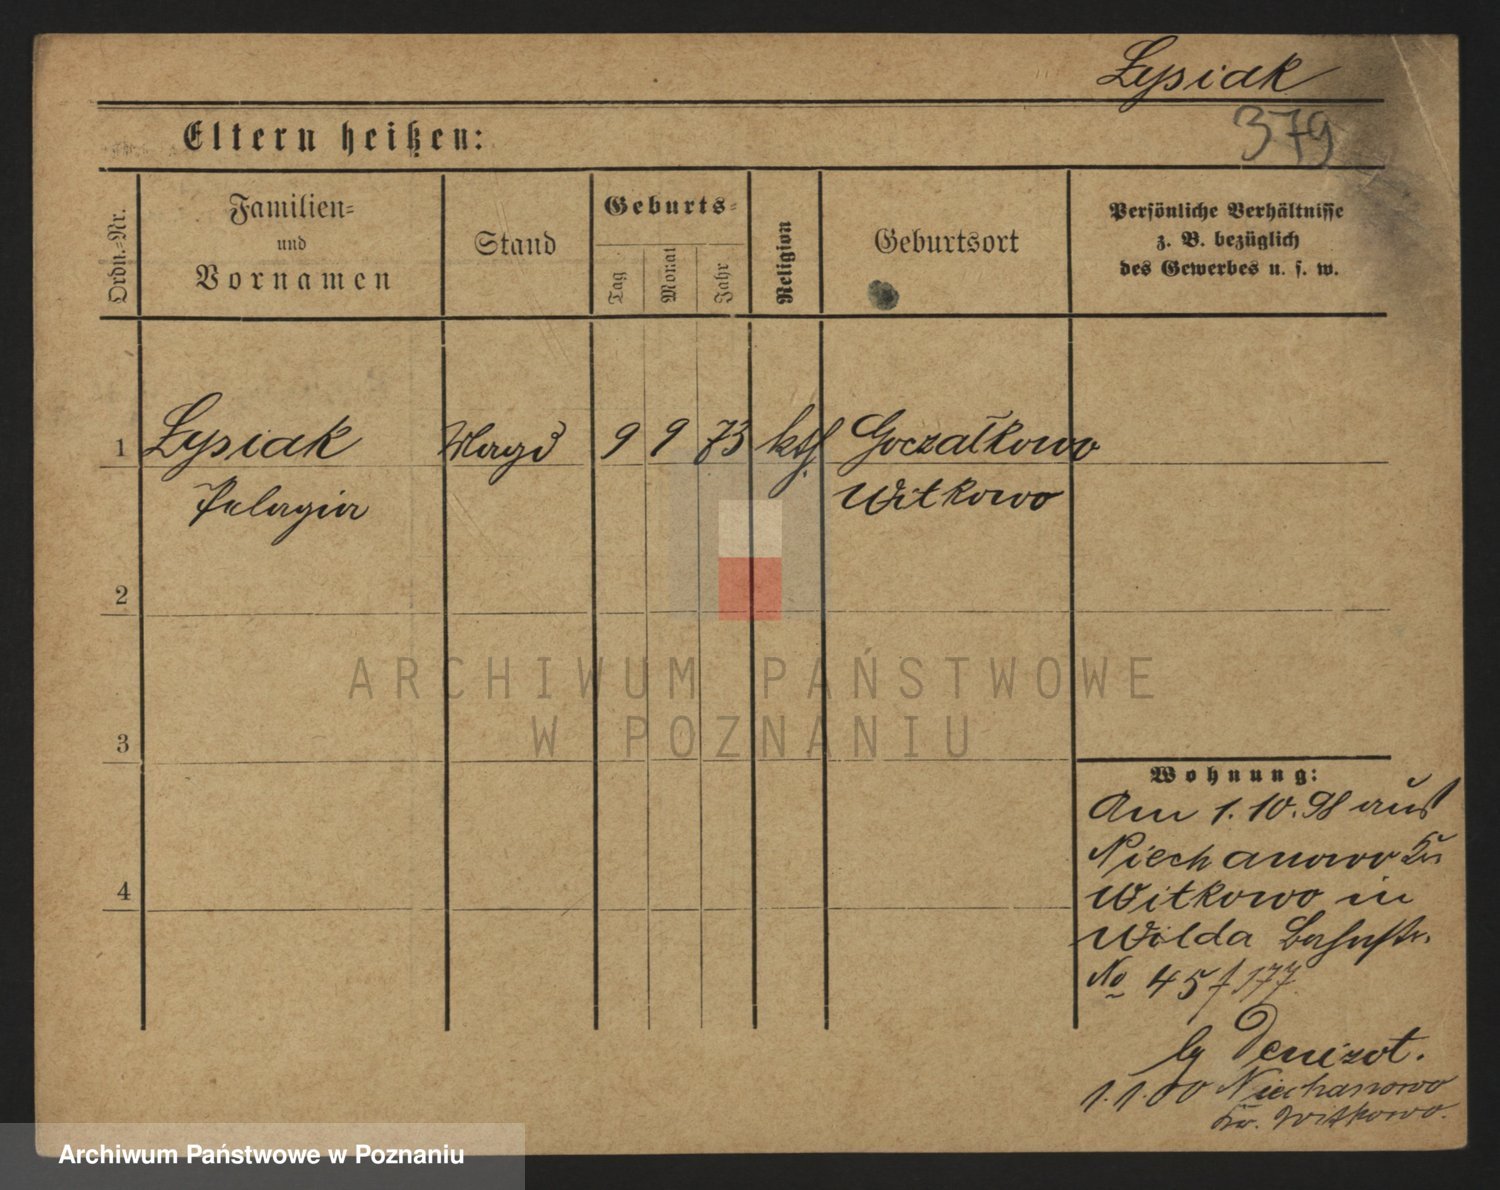 Lysiak
379
Eltern heißen:
Ordn.-Nr.
Familien-
und
Vornamen
Stand
Geburts-
Tag
Monat
Jahr
Religion
Geburtsort
Persönliche Verhältnisse
z. B. bezüglich
des Gewerbes u. s. w.
1 Lysiak Magd 9 9 73 kth Goczałkowo
Pelagia Witkowo
2
3
4
ARCHIWUM PAŃSTWOWE
W POZNANIU
Wohnung:
Am 1.10.98 aus
Niechanowo Krs
Witkowo in
Wilda Bahnstr.
No 45 / 177
by Denizot.
1.1.00 Niechanowo
Kr. Witkowo.
Archiwum Państwowe w Poznaniu